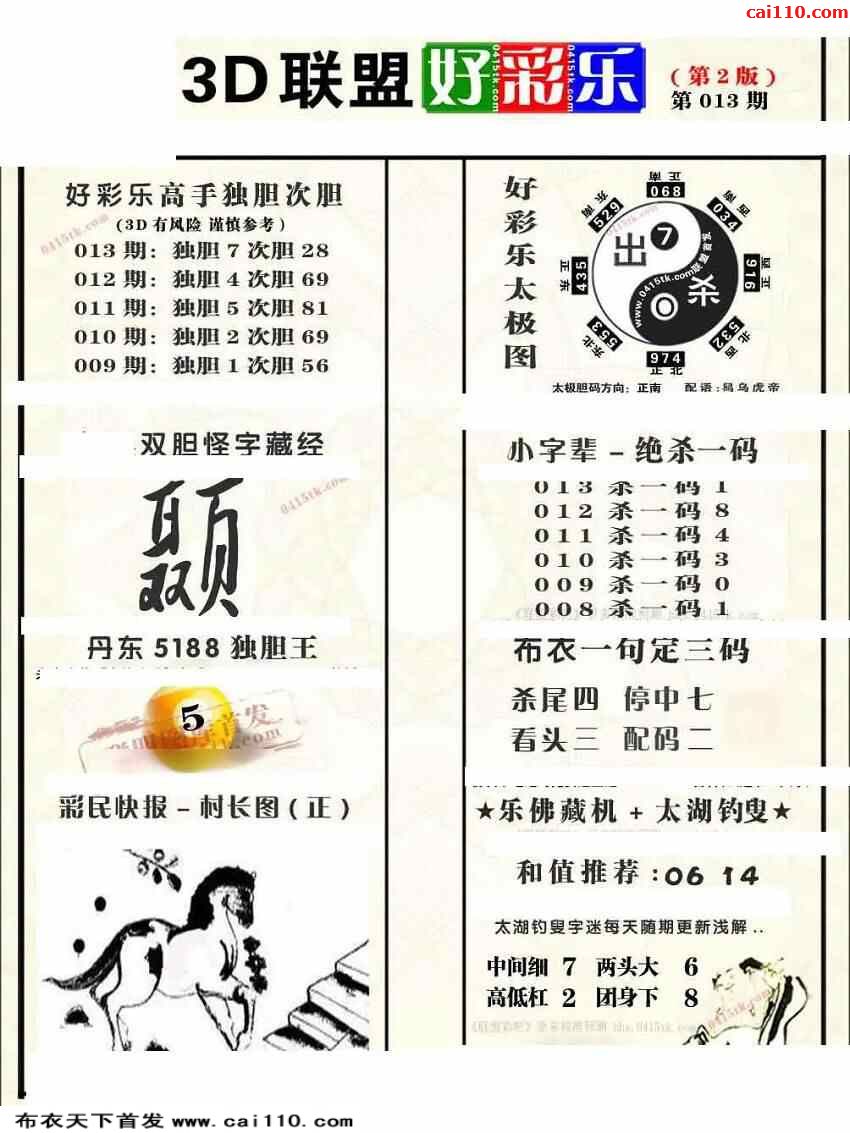 cai110.com
3D 联盟 好彩乐
(第2版)
第 013 期
好彩乐高手独胆次胆
(3D有风险 谨慎参考)
013 期: 独胆 7 次胆 28
012 期: 独胆 4 次胆 69
011 期: 独胆 5 次胆 81
010 期: 独胆 2 次胆 69
009 期: 独胆 1 次胆 56
好彩乐太极图
正南 068
西南 034
正西 916
西北 532
正北 974
东北 553
正东 435
东南 529
出 7
杀 0
www.0415tk.com联盟首发
太极胆码方向: 正南 配语:
双胆怪字藏经
0415tk.com
小字辈 - 绝杀一码
013 杀一码 1
012 杀一码 8
011 杀一码 4
010 杀一码 3
009 杀一码 0
008 杀一码 1
丹东 5188 独胆王
5
布衣一句定三码
杀尾四 停中七
看头三 配码二
彩民快报 - 村长图 ( 正 )
★乐佛藏机 + 太湖钓叟★
和值推荐 :06 14
太湖钓叟字迷每天随期更新浅解 ..
中间细 7 两头大 6
高低杠 2 团身下 8
布衣天下首发 www.cai110.com